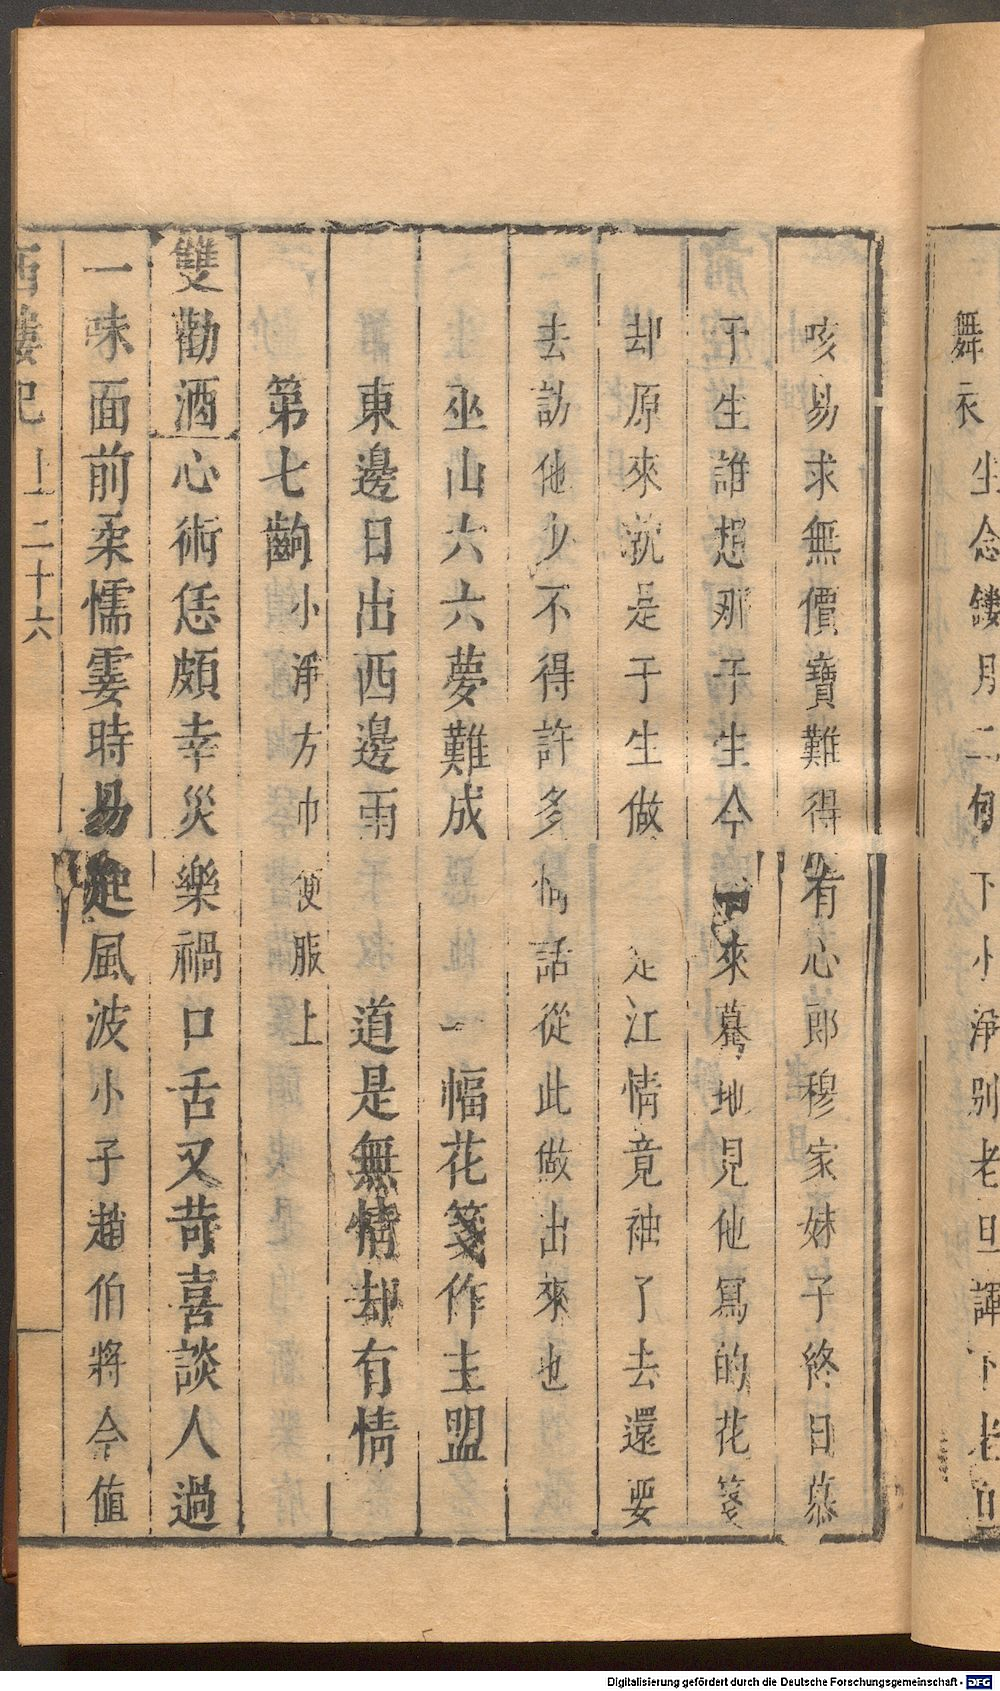 舞衣 生念鏤月二句 下 小淨別老旦諢下
咳易求無價寶難得有心郎穆家妹子終日慕
于生誰想那于生今 來驀地見他寫的花箋
却原來就是于生做 是江情竟袖了去還要
去訪他少不得許多情話從此做出來也
巫山六六夢難成 一幅花箋作主盟
東邊日出西邊雨 道是無情却有情
第七齣 小淨方巾便服上
雙勸酒 心術恁頗幸災樂禍口舌又苛喜談人過
一味面前柔懦霎時易起風波小子趙伯將今值
西樓記 上 二十六
Digitalisierung gefördert durch die Deutsche Forschungsgemeinschaft - DFG